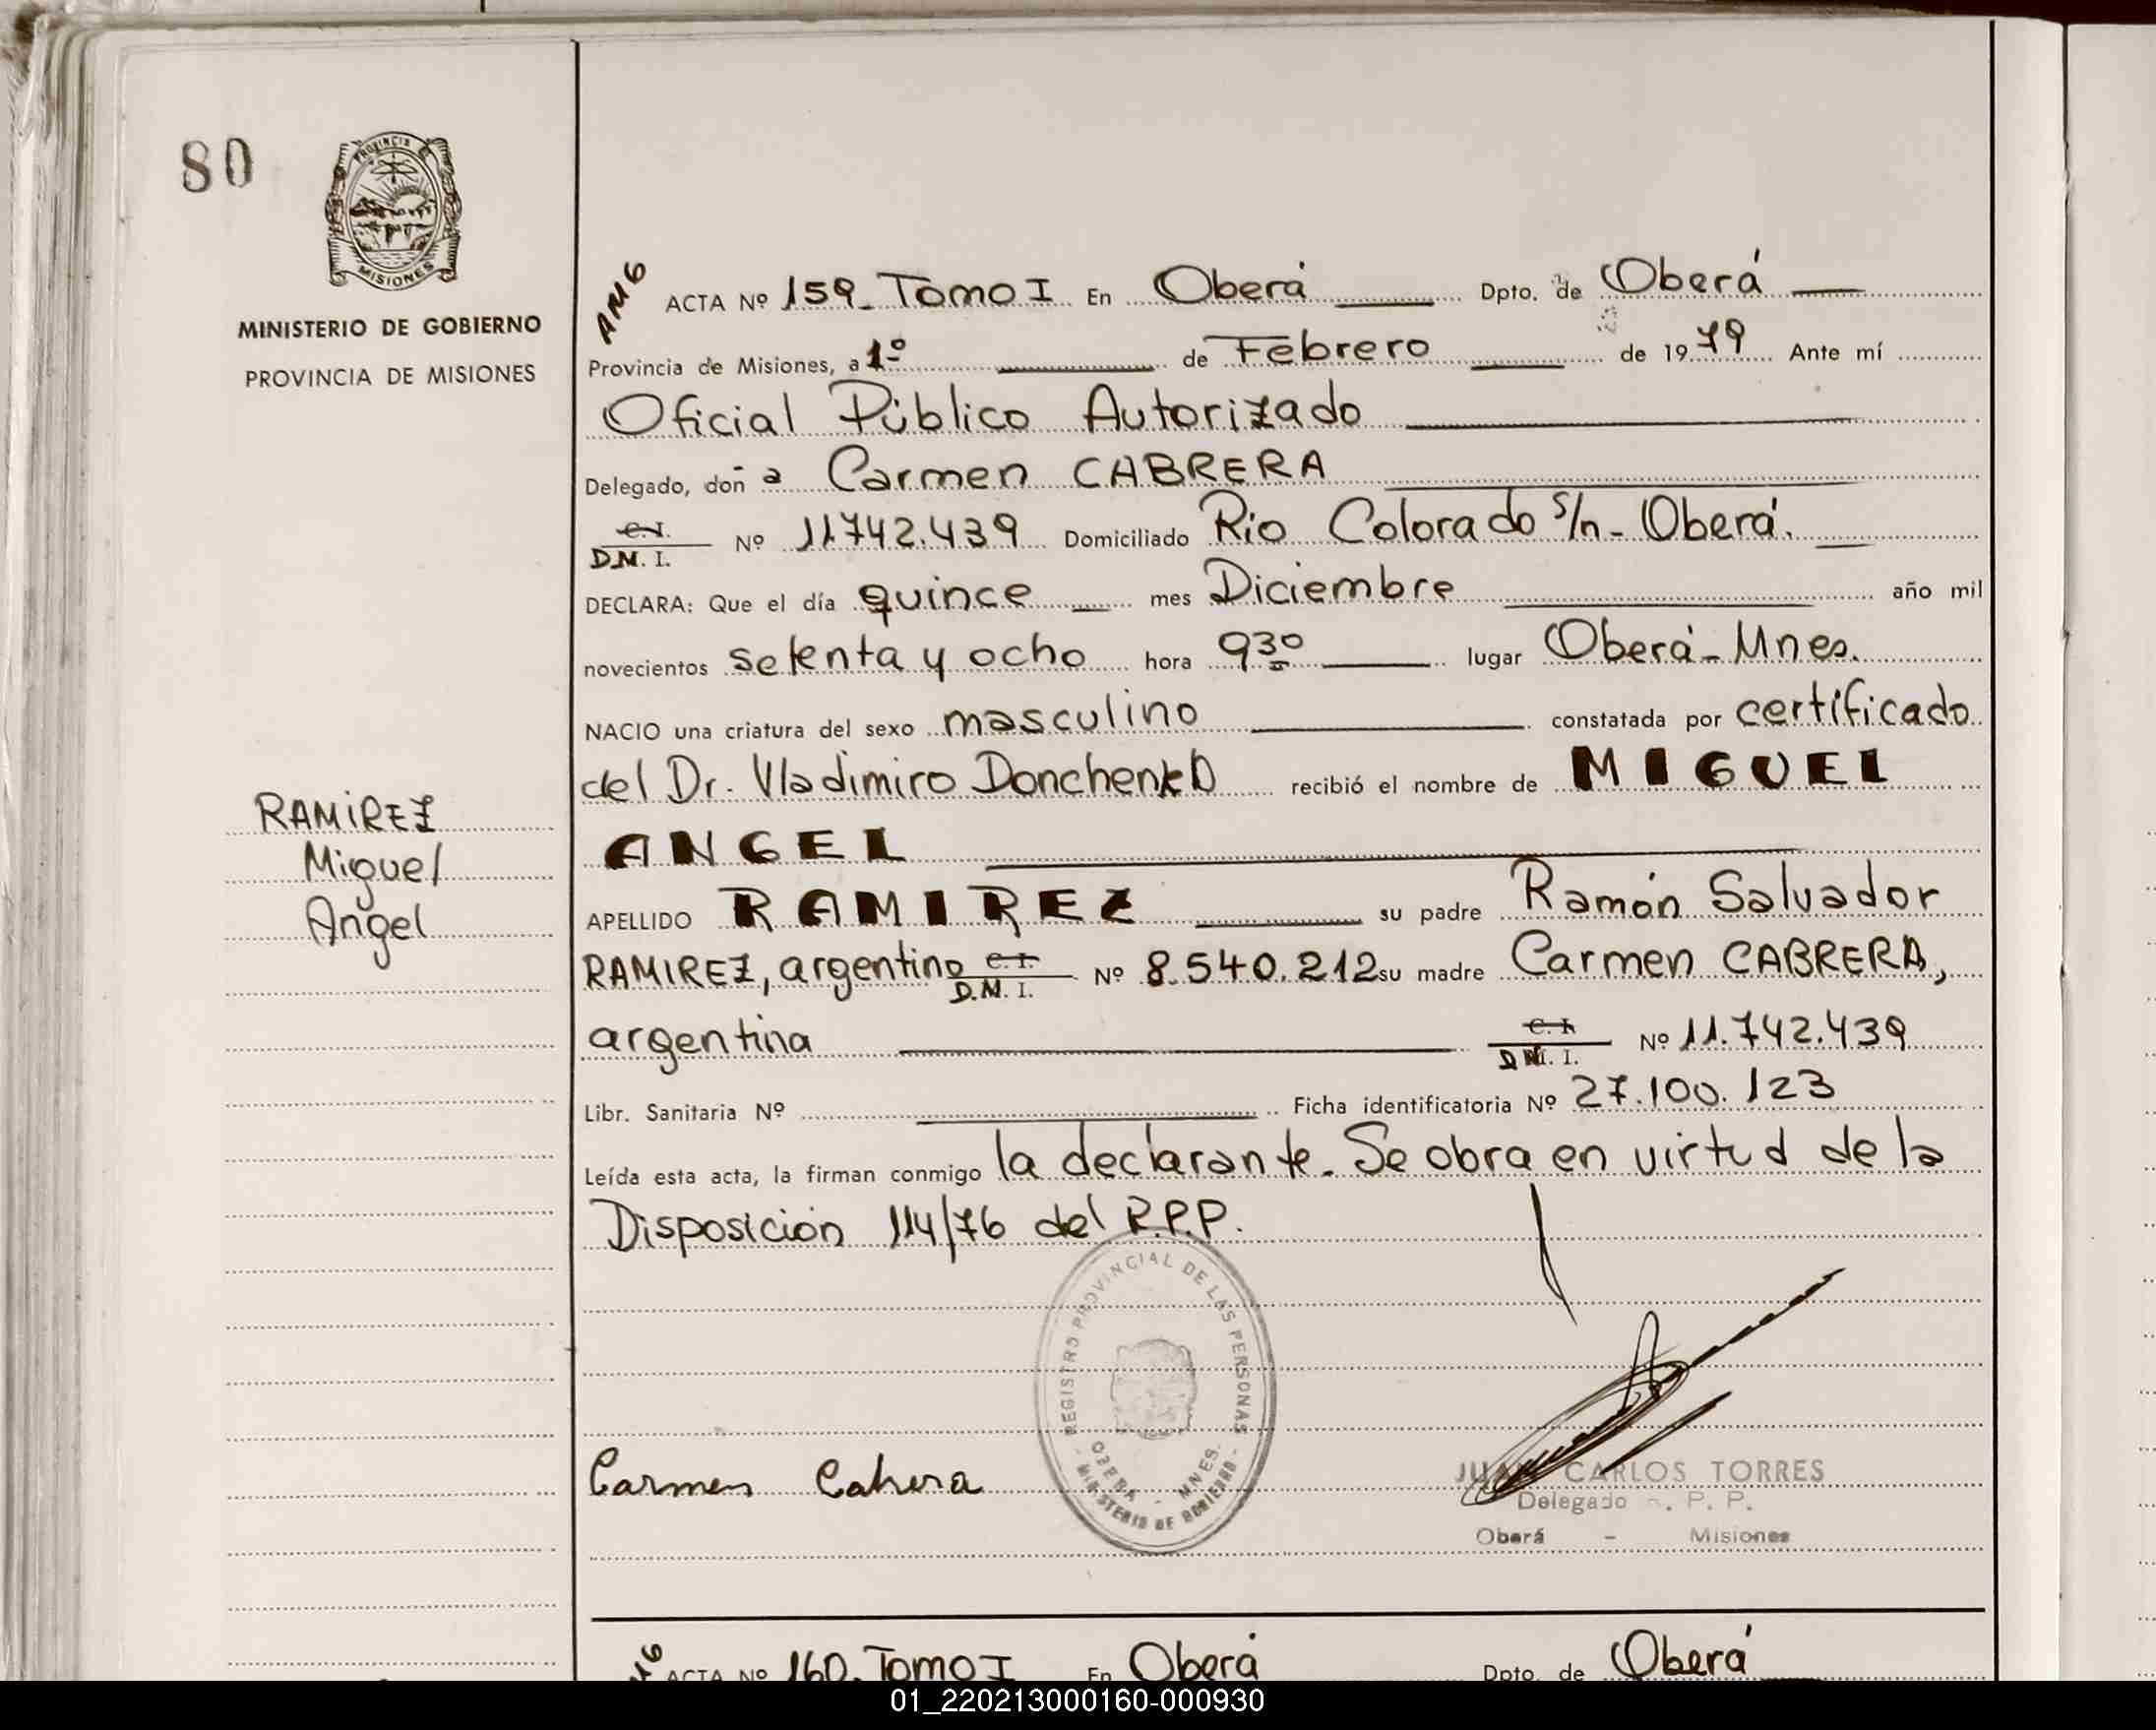 80
PROVINCIA
MISIONES
MINISTERIO DE GOBIERNO
PROVINCIA DE MISIONES
RAMIREZ
Miguel
Angel
ACTA Nº 159 - Tomo I En Oberá Dpto. de Oberá
Provincia de Misiones, a 1º de Febrero de 1979 Ante mí
Oficial Público Autorizado
Delegado, doña Carmen CABRERA
C.I.
D.N.I. Nº 11.742.439 Domiciliado Rio Colorado s/n - Oberá.
DECLARA: Que el día quince mes Diciembre año mil
novecientos setenta y ocho hora 9 30 lugar Oberá - Mnes.
NACIO una criatura del sexo masculino constatada por certificado
del Dr. Vladimiro Donchenko recibió el nombre de MIGUEL
ANGEL
APELLIDO RAMIREZ su padre Ramón Salvador
RAMIREZ, argentino C.I. D.N.I. Nº 8.540.212 su madre Carmen CABRERA,
argentina C.I. D.N.I. Nº 11.742.439
Libr. Sanitaria Nº Ficha identificatoria Nº 27.100.123
Leída esta acta, la firman conmigo la declarante. Se obra en virtud de la
Disposición 114/76 del R.P.P.
REGISTRO PROVINCIAL DE LAS PERSONAS
OBERA - MNES.
MINISTERIO DE GOBIERNO
Carmen Cabrera
JUAN CARLOS TORRES
Delegado R. P. P.
Oberá - Misiones
ACTA Nº 160. Tomo I En Oberá Dpto. de Oberá
01_220213000160-000930